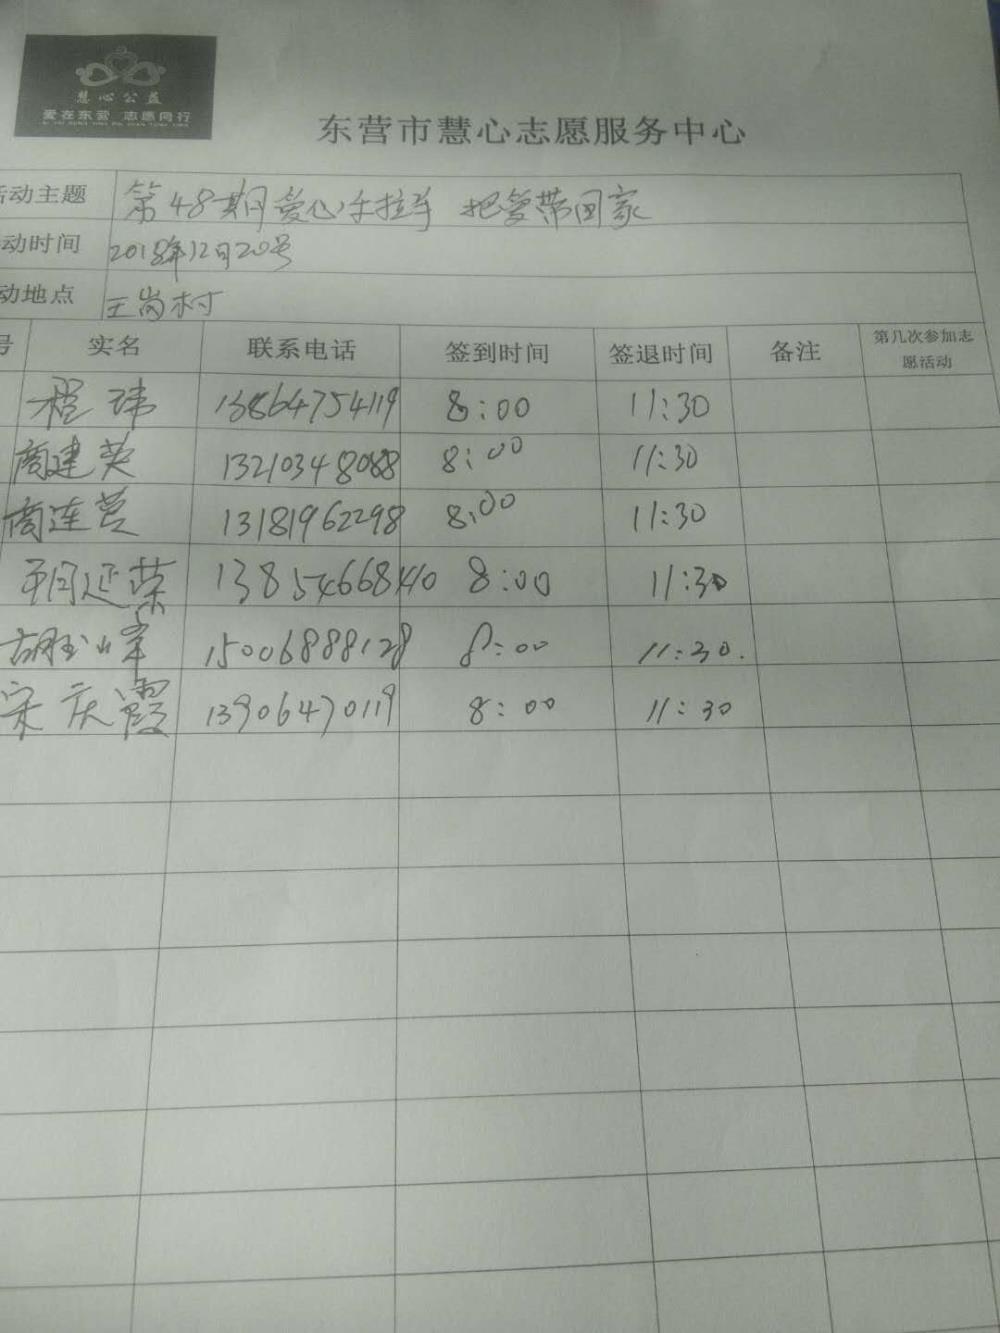 慧心公益
爱在东营 志愿同行
东营市慧心志愿服务中心
活动主题 第48期 爱心手拉手 把爱带回家
动时间 2018年12月20号
动地点 王岗村
号 实名 联系电话 签到时间 签退时间 备注 第几次参加志愿活动
程玮 13864754119 8:00 11:30
商建英 13210348088 8:00 11:30
商连芸 13181962298 8:00 11:30
延荣 13854668440 8:00 11:30
胡玉峰 15006888128 8:00 11:30.
宋庆霞 13906470119 8:00 11:30